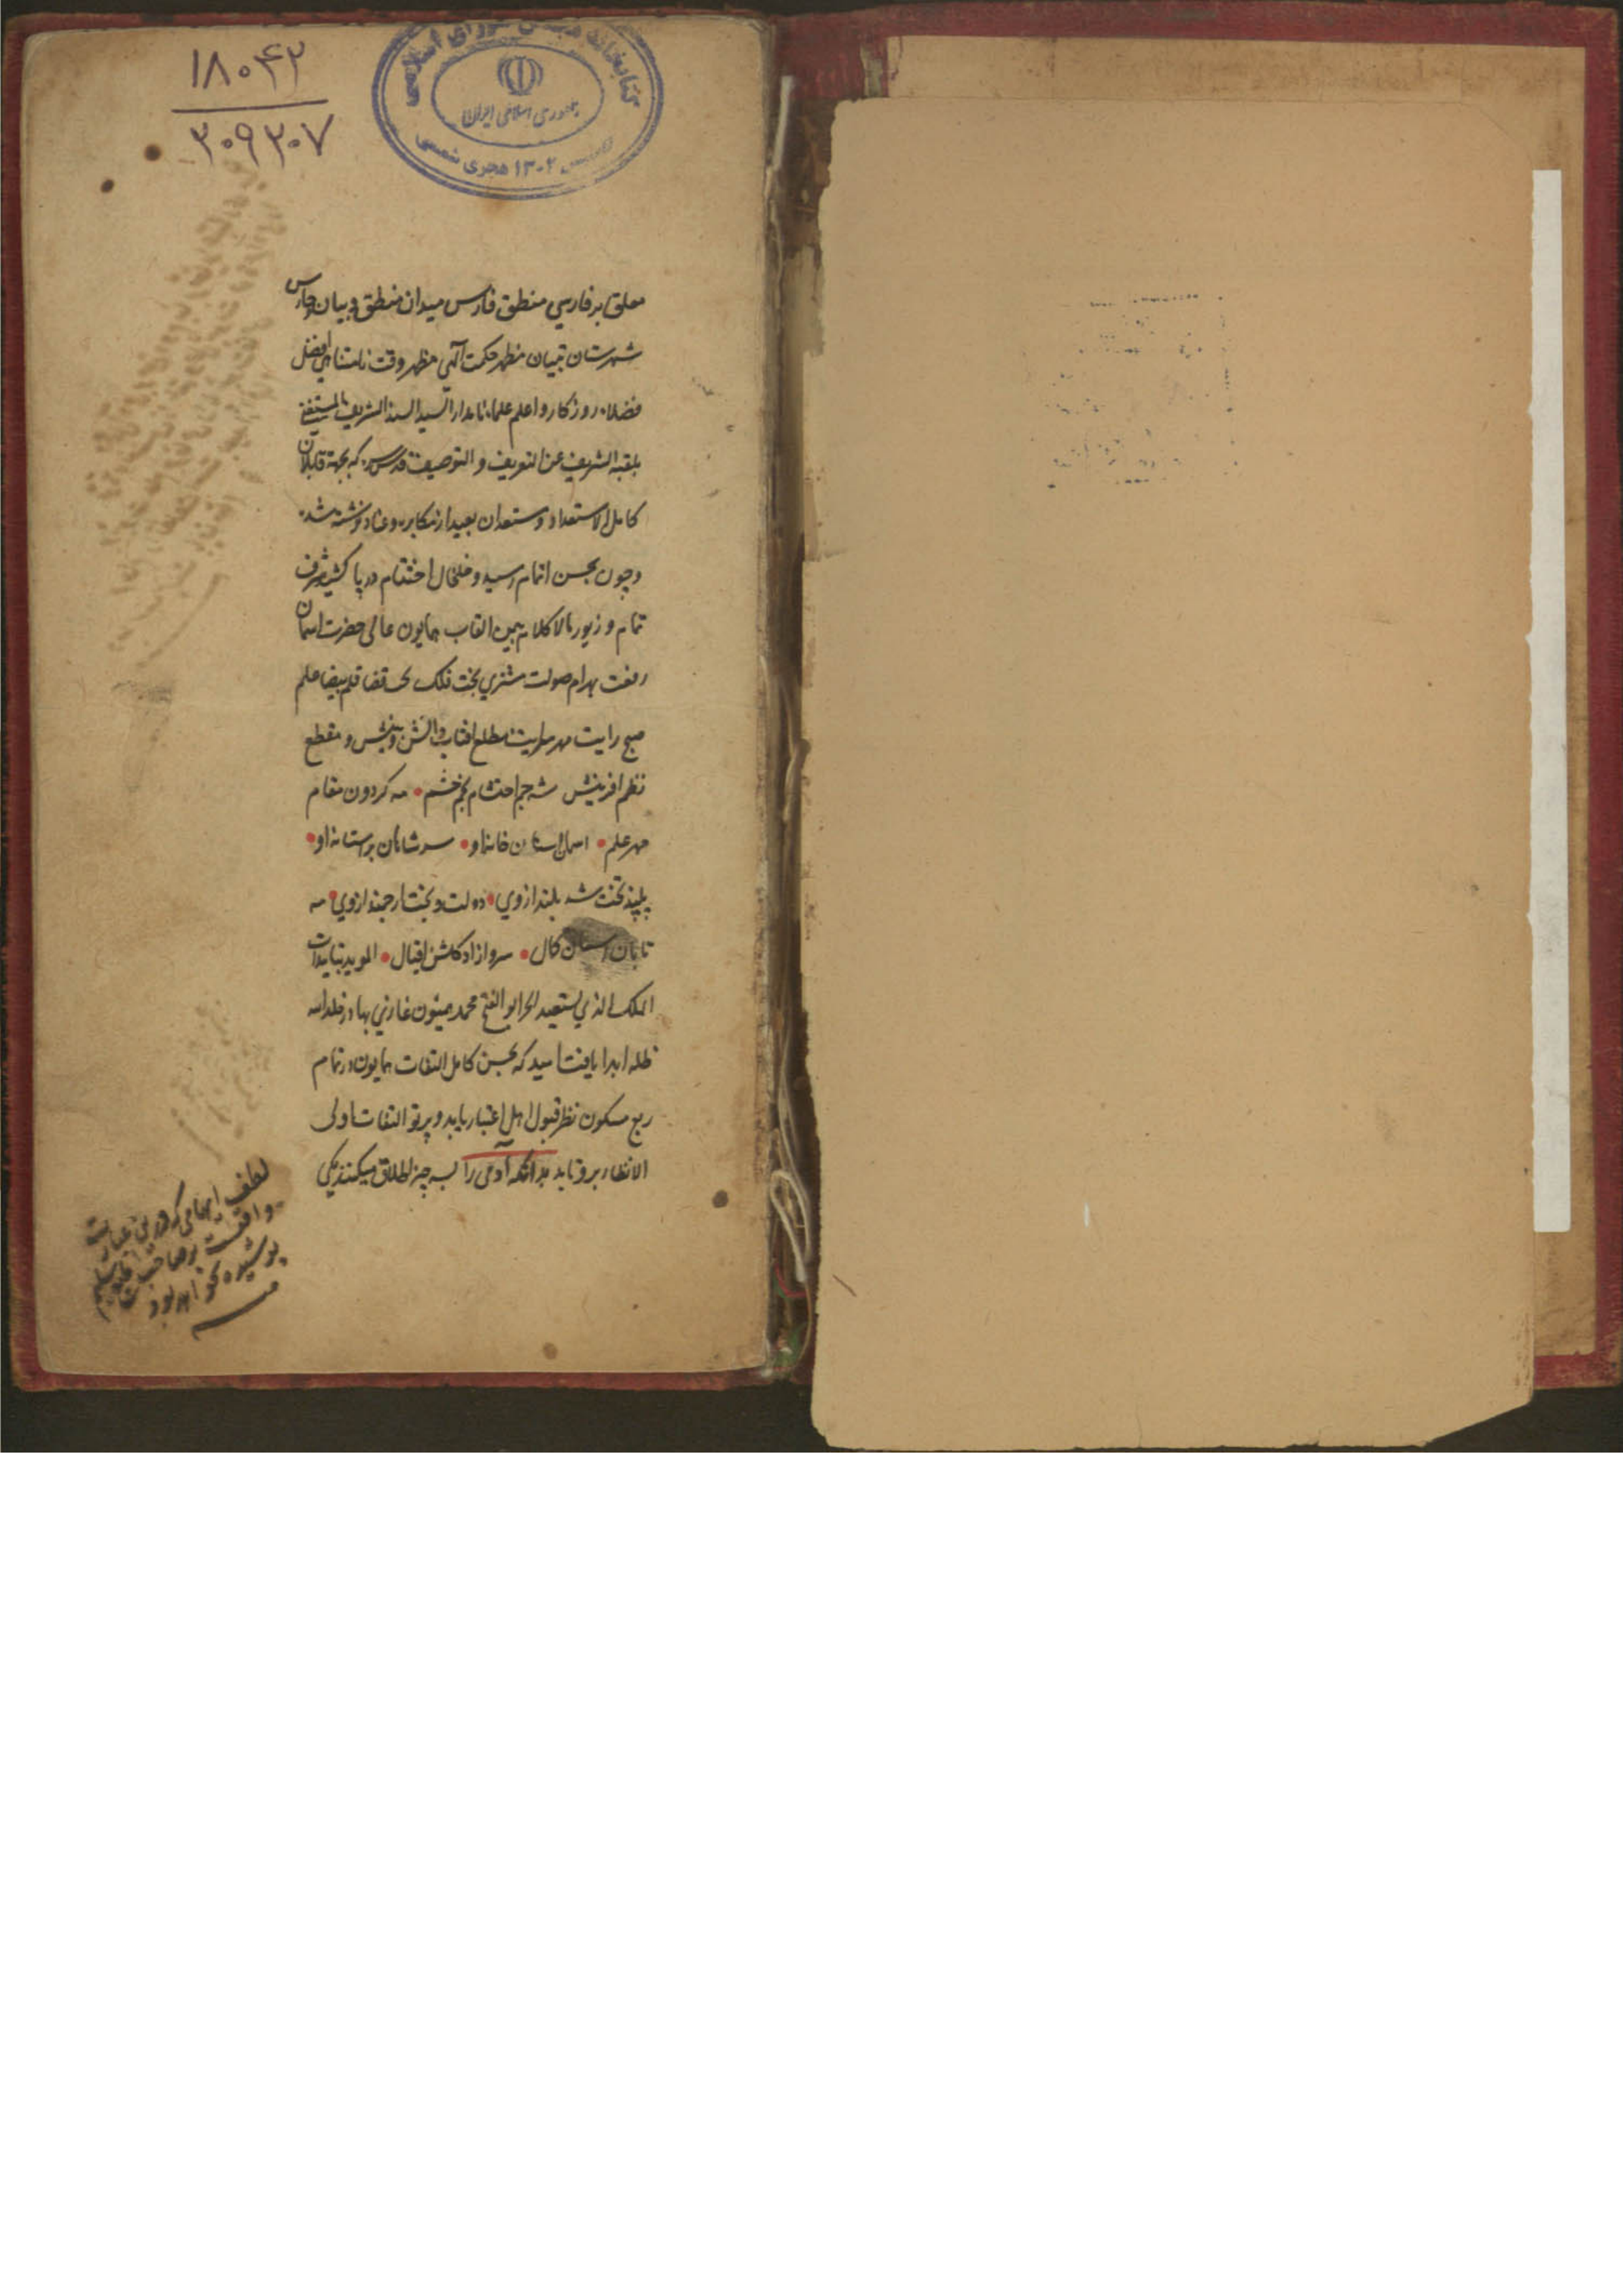 ۱۸۰۴۳
۳۰۹۳۰۷
کتابخانه مجلس شورای اسلامی
جمهوری اسلامی ایران
۱۳۰۲ هجری شمسی
معلق بر فارسي منطق فارس میدان منطق و بیان و حارس
شهرستان تبیان مظهر حکمت آلهی مظهر وقت نامتناهی افضل
فضلاء روزکار و اعلم علماء نامدار السید السند الشریف المستغنی
بلقبه الشریف عن التعریف و التوصیف قدس سره که بجهة قابلان
کامل الاستعداد و مستعدان بعید از مکابره و عناد نوشته شد
و چون بحسن اتمام رسید و خلخال اختتام در پا کشید شرف
تمام و زیور مالا کلام بیمن القاب همایون عالی حضرت اسمان
رفعت بهرام صولت مشتري بخت فلک تخت قضا قلم بیضا علم
صبح رایت مهر سرایت مطلع افتاب دانش و بینش و مقطع
نظم افرینش شه جم احتشام نجم خشم مه کردون مقام
مهر علم اسمان استان خانه او سر شاهان بر استانه او
پایه تخت شد بلند ازوي دولت و بخت ارجمند ازوي مه
تابان اسمان کمال سرو ازاد کلشن اقبال الموید بتاییدات
الملک الذي یستعید الحر ابو الفتح محمد همیون غازي بهادر خلد الله
ظله ابدا یافت امید که بحسن کامل التفات همایون در تمام
ربع مسکون نظر قبول اهل اعتبار یابد و پرتو التفات اولی
الانظار برو تابد بدانکه آدمی را بسه چیز اطلاق میکنند یکی
لطف ایهامی که درین عبارت
واقعست بر صاحب طبع سلیم
پوشیده نخواهد بود